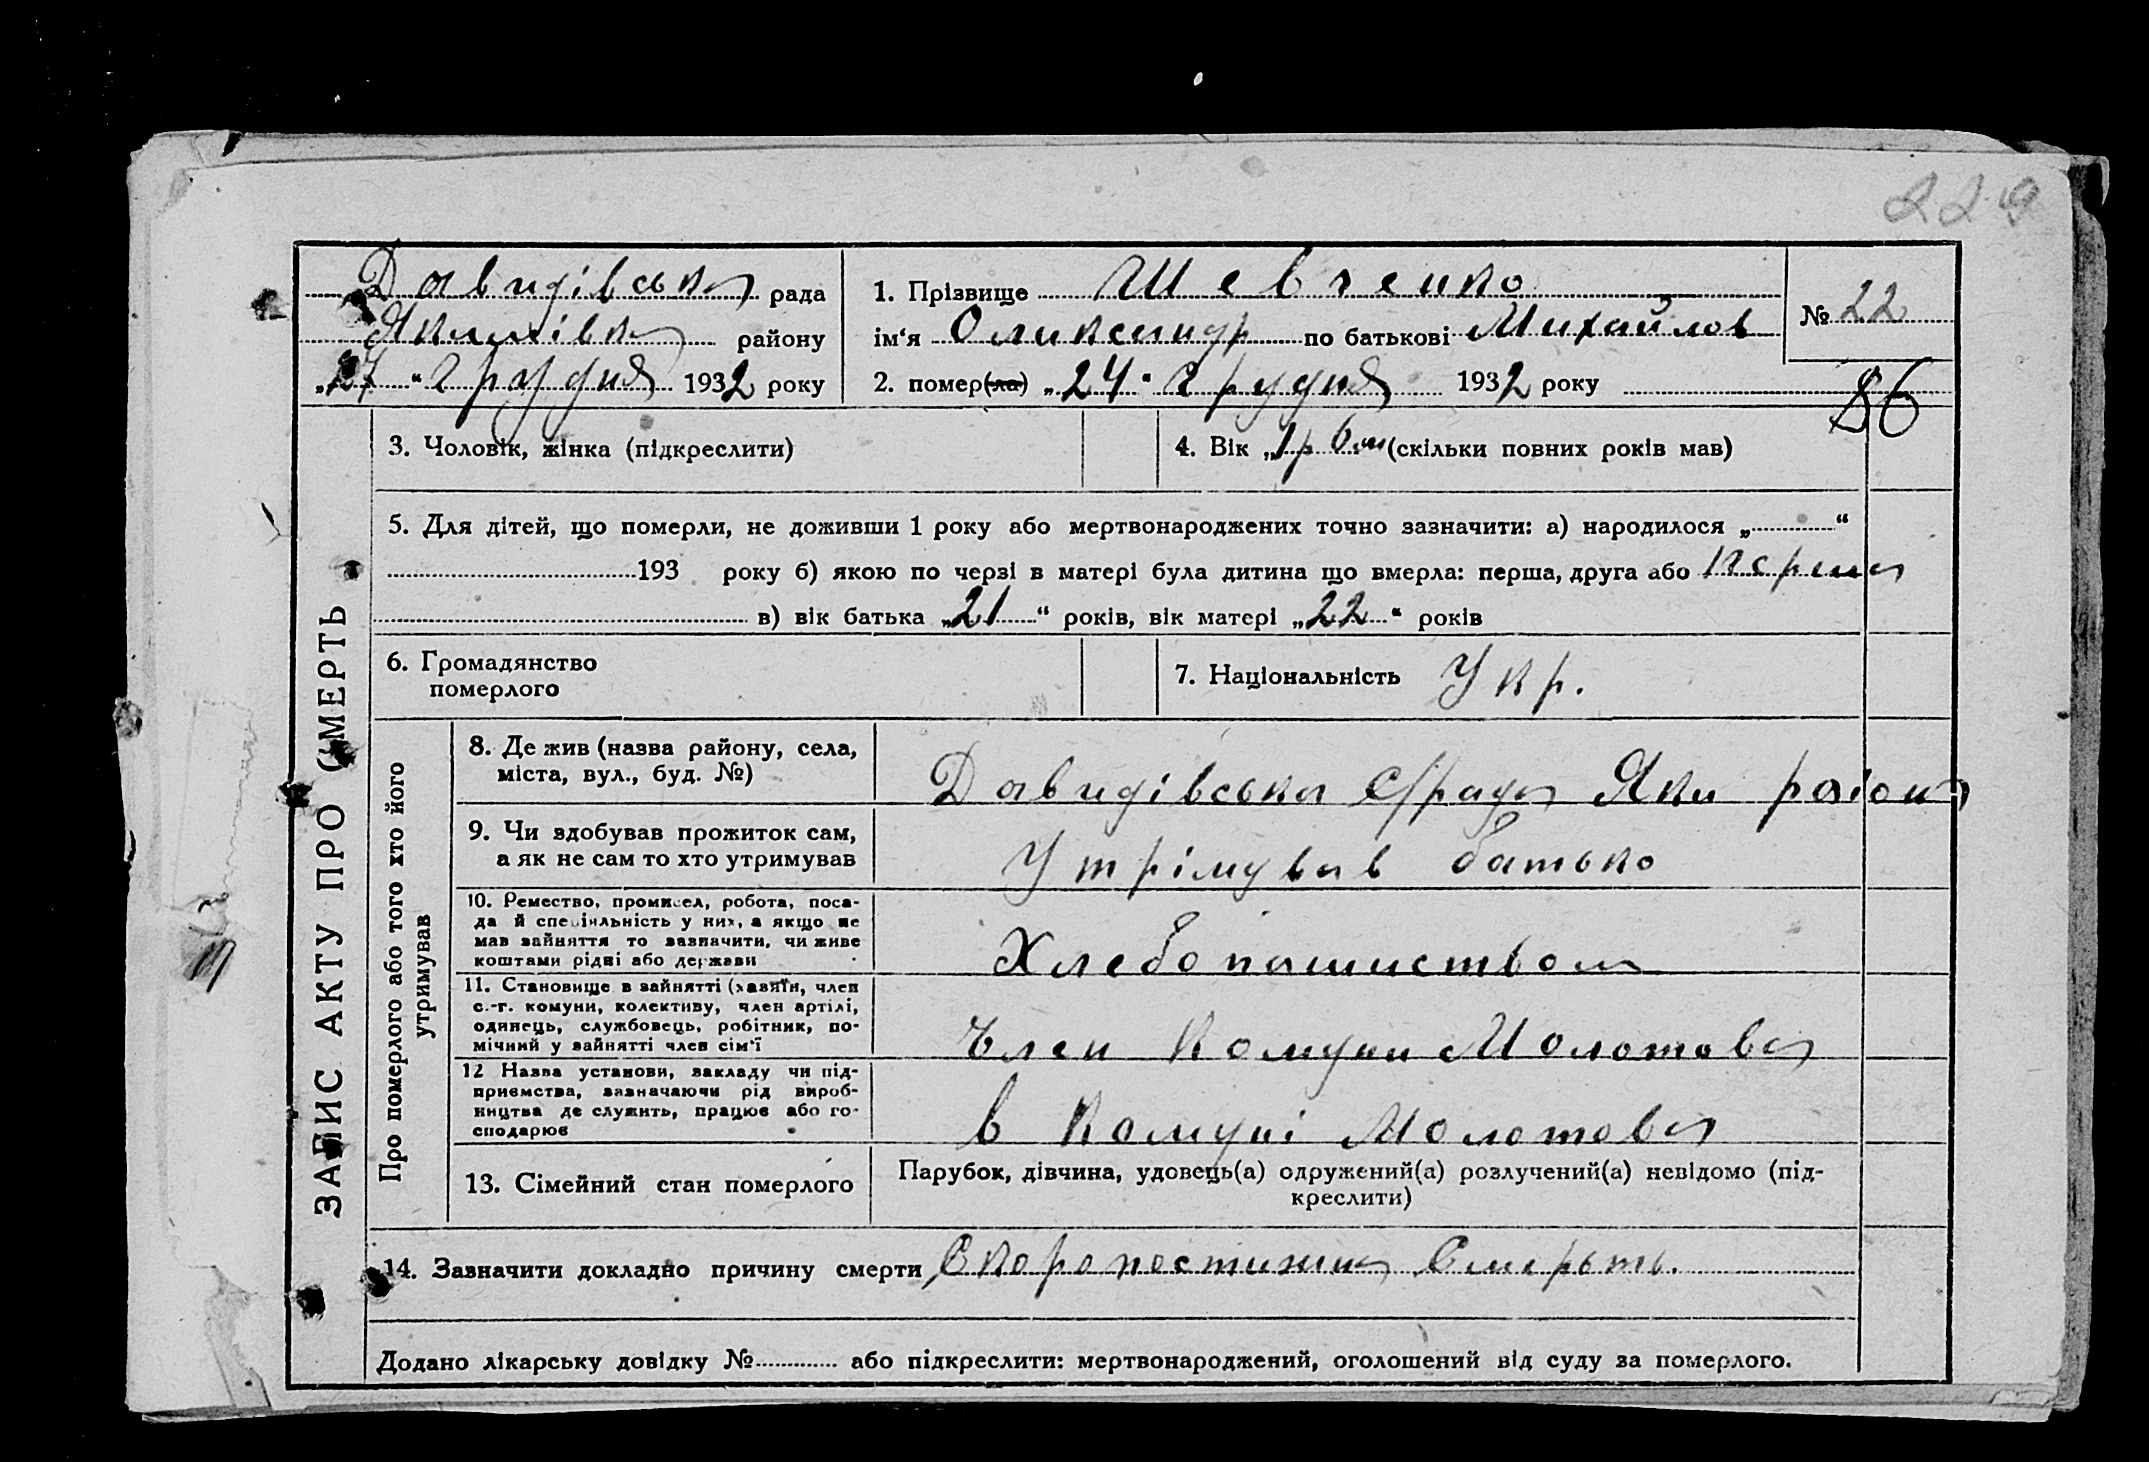 229
Давидівська рада
Якимівка району
„27“ грудня 1932 року
1. Прізвище Шевченко
ім‘я Олександр по батькові Михайлов
2. помер(ла) „24“ грудня 1932 року
№ 22
86
ЗАПИС АКТУ ПРО СМЕРТЬ
3. Чоловік, жінка (підкреслити)
4. Вік „1р 6м (скільки повних років мав)
5. Для дітей, що померли, не доживши 1 року або мертвонароджених точно зазначити: а) народилося „ “
193 року б) якою по черзі в матері була дитина що вмерла: перша, друга або перша
в) вік батька „21“ років, вік матері „22“ років
6. Громадянство
померлого
7. Національність Укр.
Про померлого або того хто його
утримував
8. Де жив (назва району, села,
міста, вул., буд. №)
Давидівська с/рада Яки района
9. Чи здобував прожиток сам,
а як не сам то хто утримував
Утрімував батько
10. Ремество, промисел, робота, поса-
да й спеціяльність у них, а якщо не
мав зайняття то зазначити, чи живе
коштами рідні або держави
Хлебопашиством
11. Становище в зайнятті (хазяїн, член
с.-г. комуни, колективу, член артілі,
одинець, службовець, робітник, по-
мічний у зайнятті член сім‘ї
Член Комуни Молотова
12 Назва установи, закладу чи під-
приємства, зазначаючи рід вироб-
ництва де служить, працює або го-
сподарює
в Комуні Молотова
13. Сімейний стан померлого
Парубок, дівчина, удовець(а) одружений(а) розлучений(а) невідомо (під-
креслити)
14. Зазначити докладно причину смерти Скоропостижна Смерть.
Додано лікарську довідку № або підкреслити: мертвонароджений, оголошений від суду за померлого.